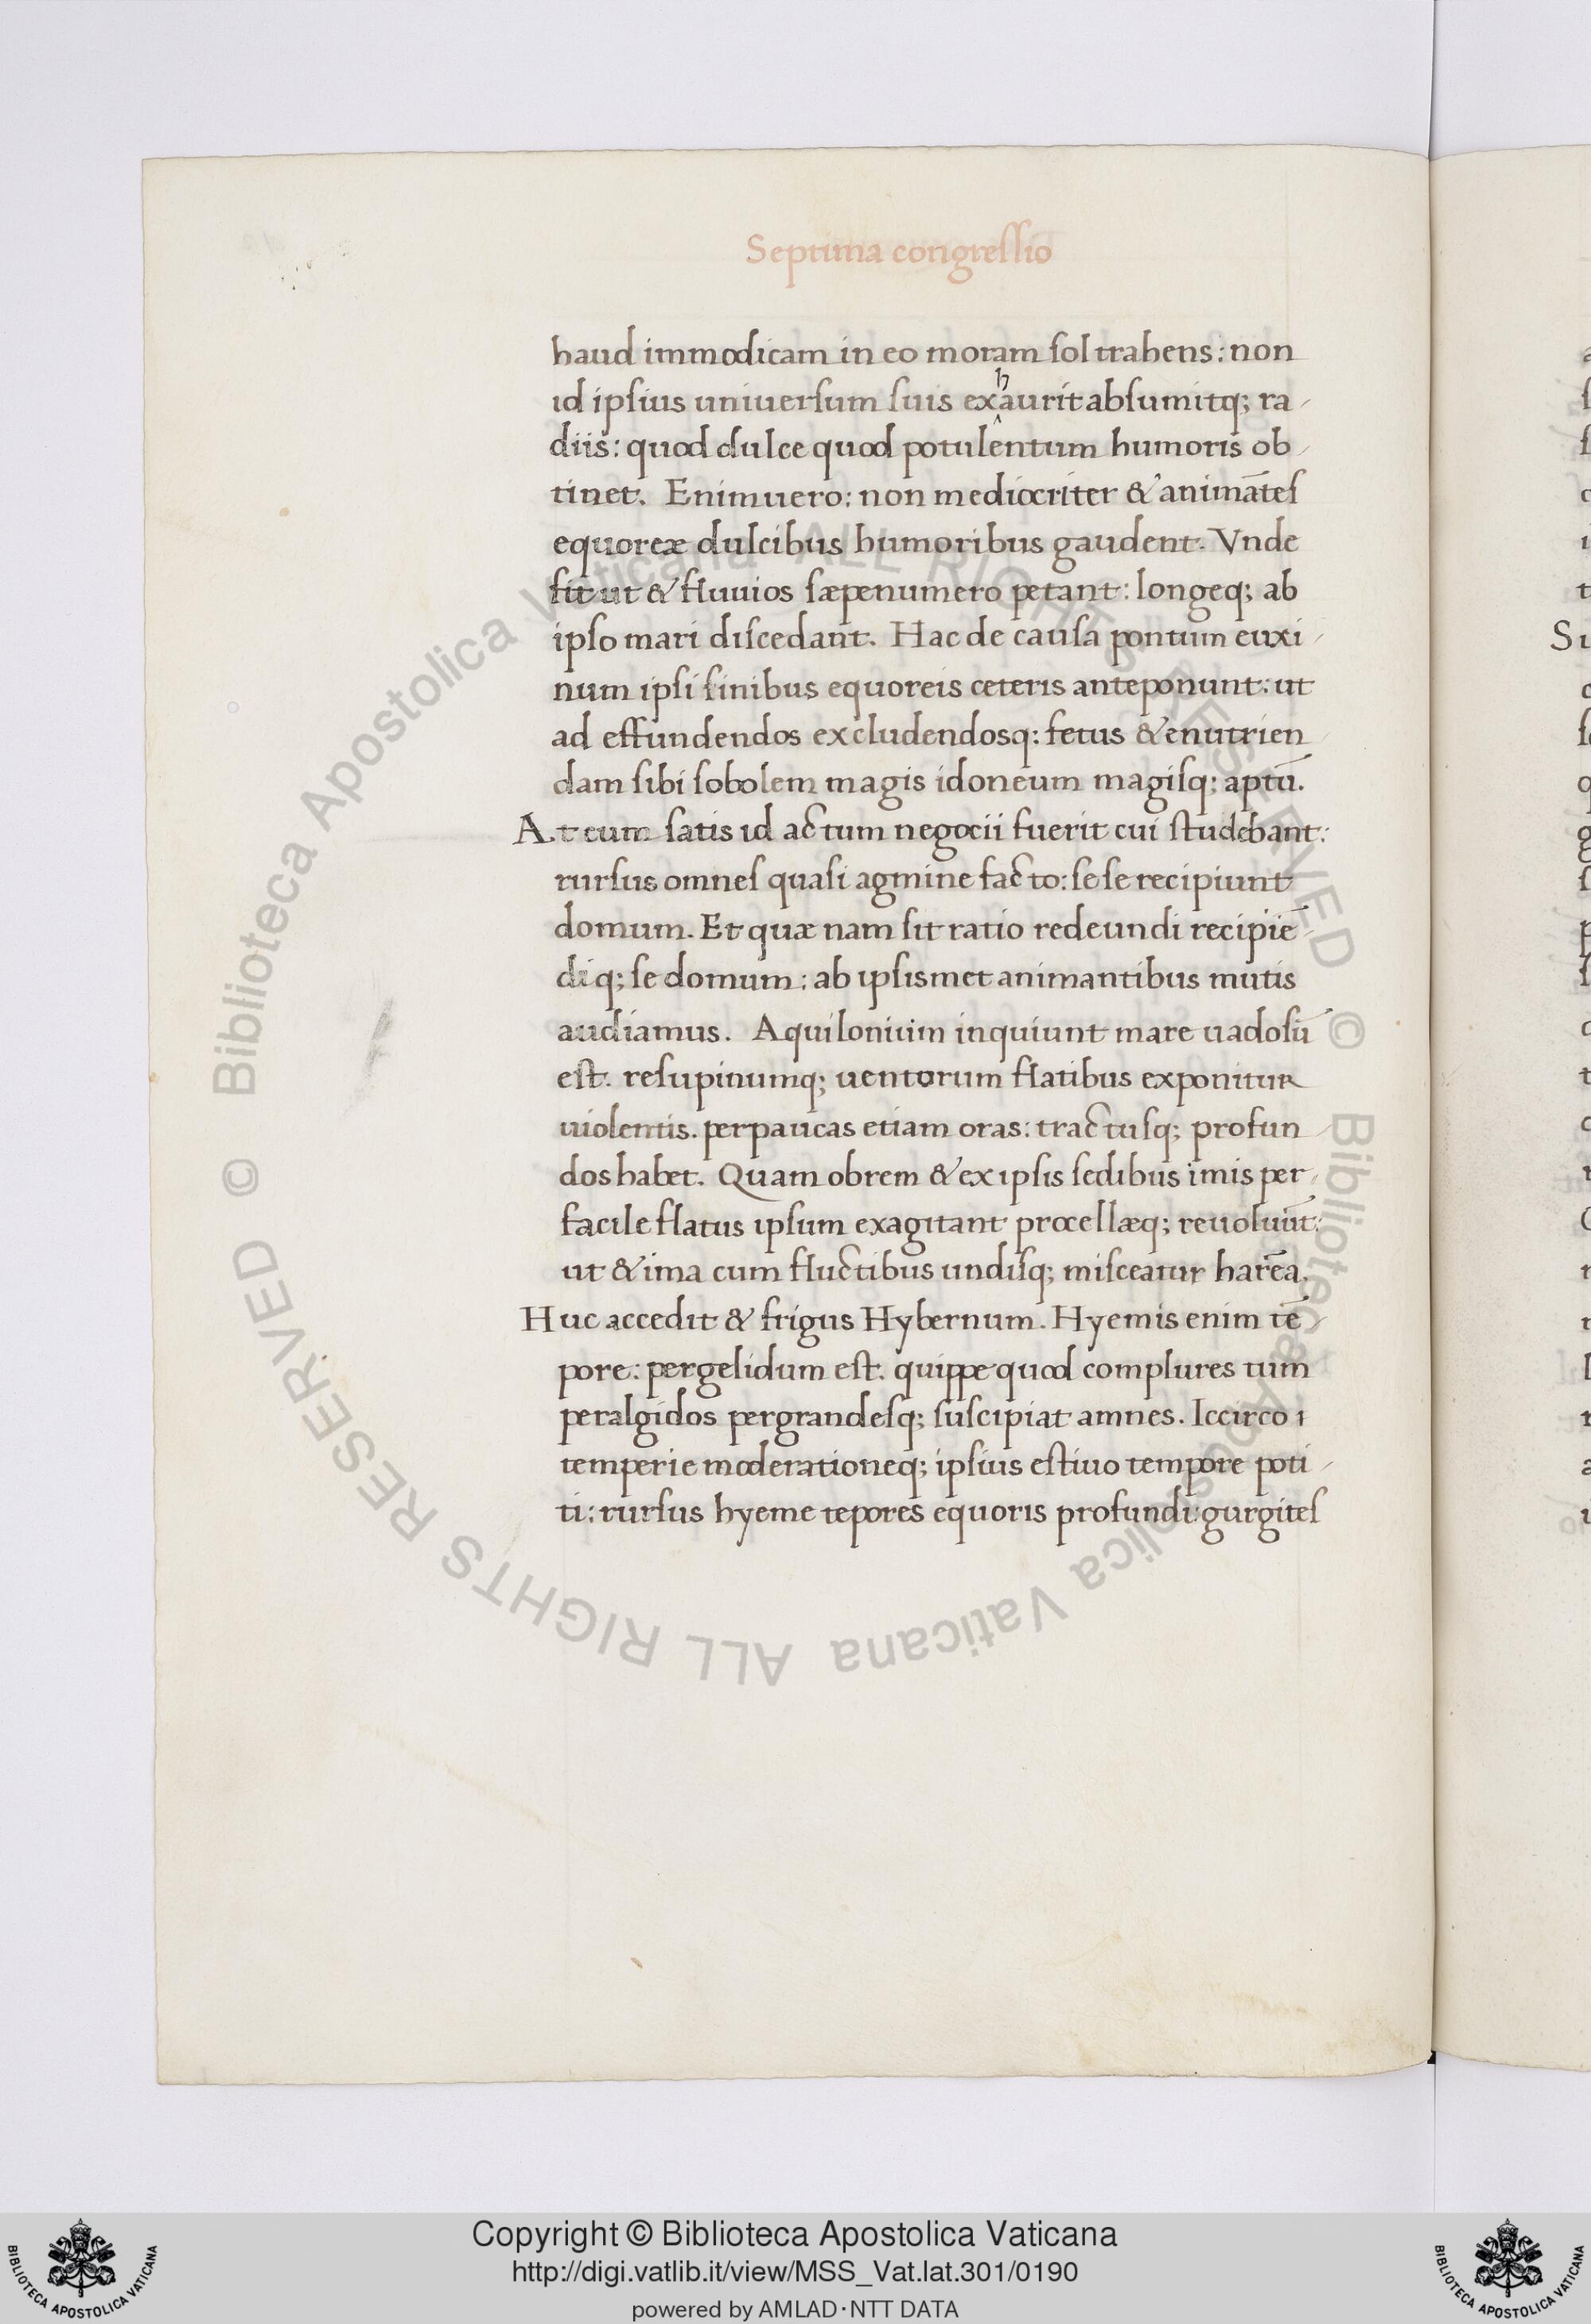 Septima congreſſio
haud immodicam in eo moram ſol trahens: non
id ipſius uniuerſum ſuis exhaurit abſumitq; ra-
diis: quod dulce quod potulentum humoris ob-
tinet. Enimuero: non mediocriter & animātes
equoreæ dulcibus humoribus gaudent. Vnde
fit ut & fluuios ſæpenumero petant: longeq; ab
ipſo mari diſcedant. Hac de cauſa pontum euxi-
num ipſi finibus equoreis ceteris anteponunt: ut
ad effundendos excludendosq; fetus & enutrien-
dam ſibi ſobolem magis idoneum magiſq; aptū.
At cum ſatis id actum negocii fuerit cui ſtudebant:
rurſus omneſ quaſi agmine facto: ſeſe recipiunt
domum. Et quæ nam ſit ratio redeundi recipiē-
diq; ſe domum: ab ipſismet animantibus mutis
audiamus. Aquilonium inquiunt mare uadoſū
eſt. reſupinumq; uentorum flatibus exponitur
uiolentis. perpaucas etiam oras: tractuſq; profun-
dos habet. Quam obrem & ex ipſis ſedibus imis per-
facile flatus ipſum exagitant procellæq; reuoluūt:
ut & ima cum fluctibus undiſq; miſceatur harēa.
Huc accedit & frigus Hybernum. Hyemis enim tē-
pore: pergelidum eſt. quippe quod complures tum
peralgidos pergrandeſq; ſuſcipiat amnes. Iccirco ı
temperie moderationeq; ipſius eſtiuo tempore poti-
ti: rurſus hyeme tepores equoris profundi: gurgiteſ
Copyright © Biblioteca Apostolica Vaticana
http://digi.vatlib.it/view/MSS_Vat.lat.301/0190
powered by AMLAD·NTT DATA
© Biblioteca Apostolica Vaticana ALL RIGHTS RESERVED
© Biblioteca Apostolica Vaticana ALL RIGHTS RESERVED
BIBLIOTECA APOSTOLICA VATICANA
BIBLIOTECA APOSTOLICA VATICANA